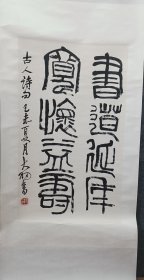 書道延年
寬懷益壽
古人詩句乙未夏月